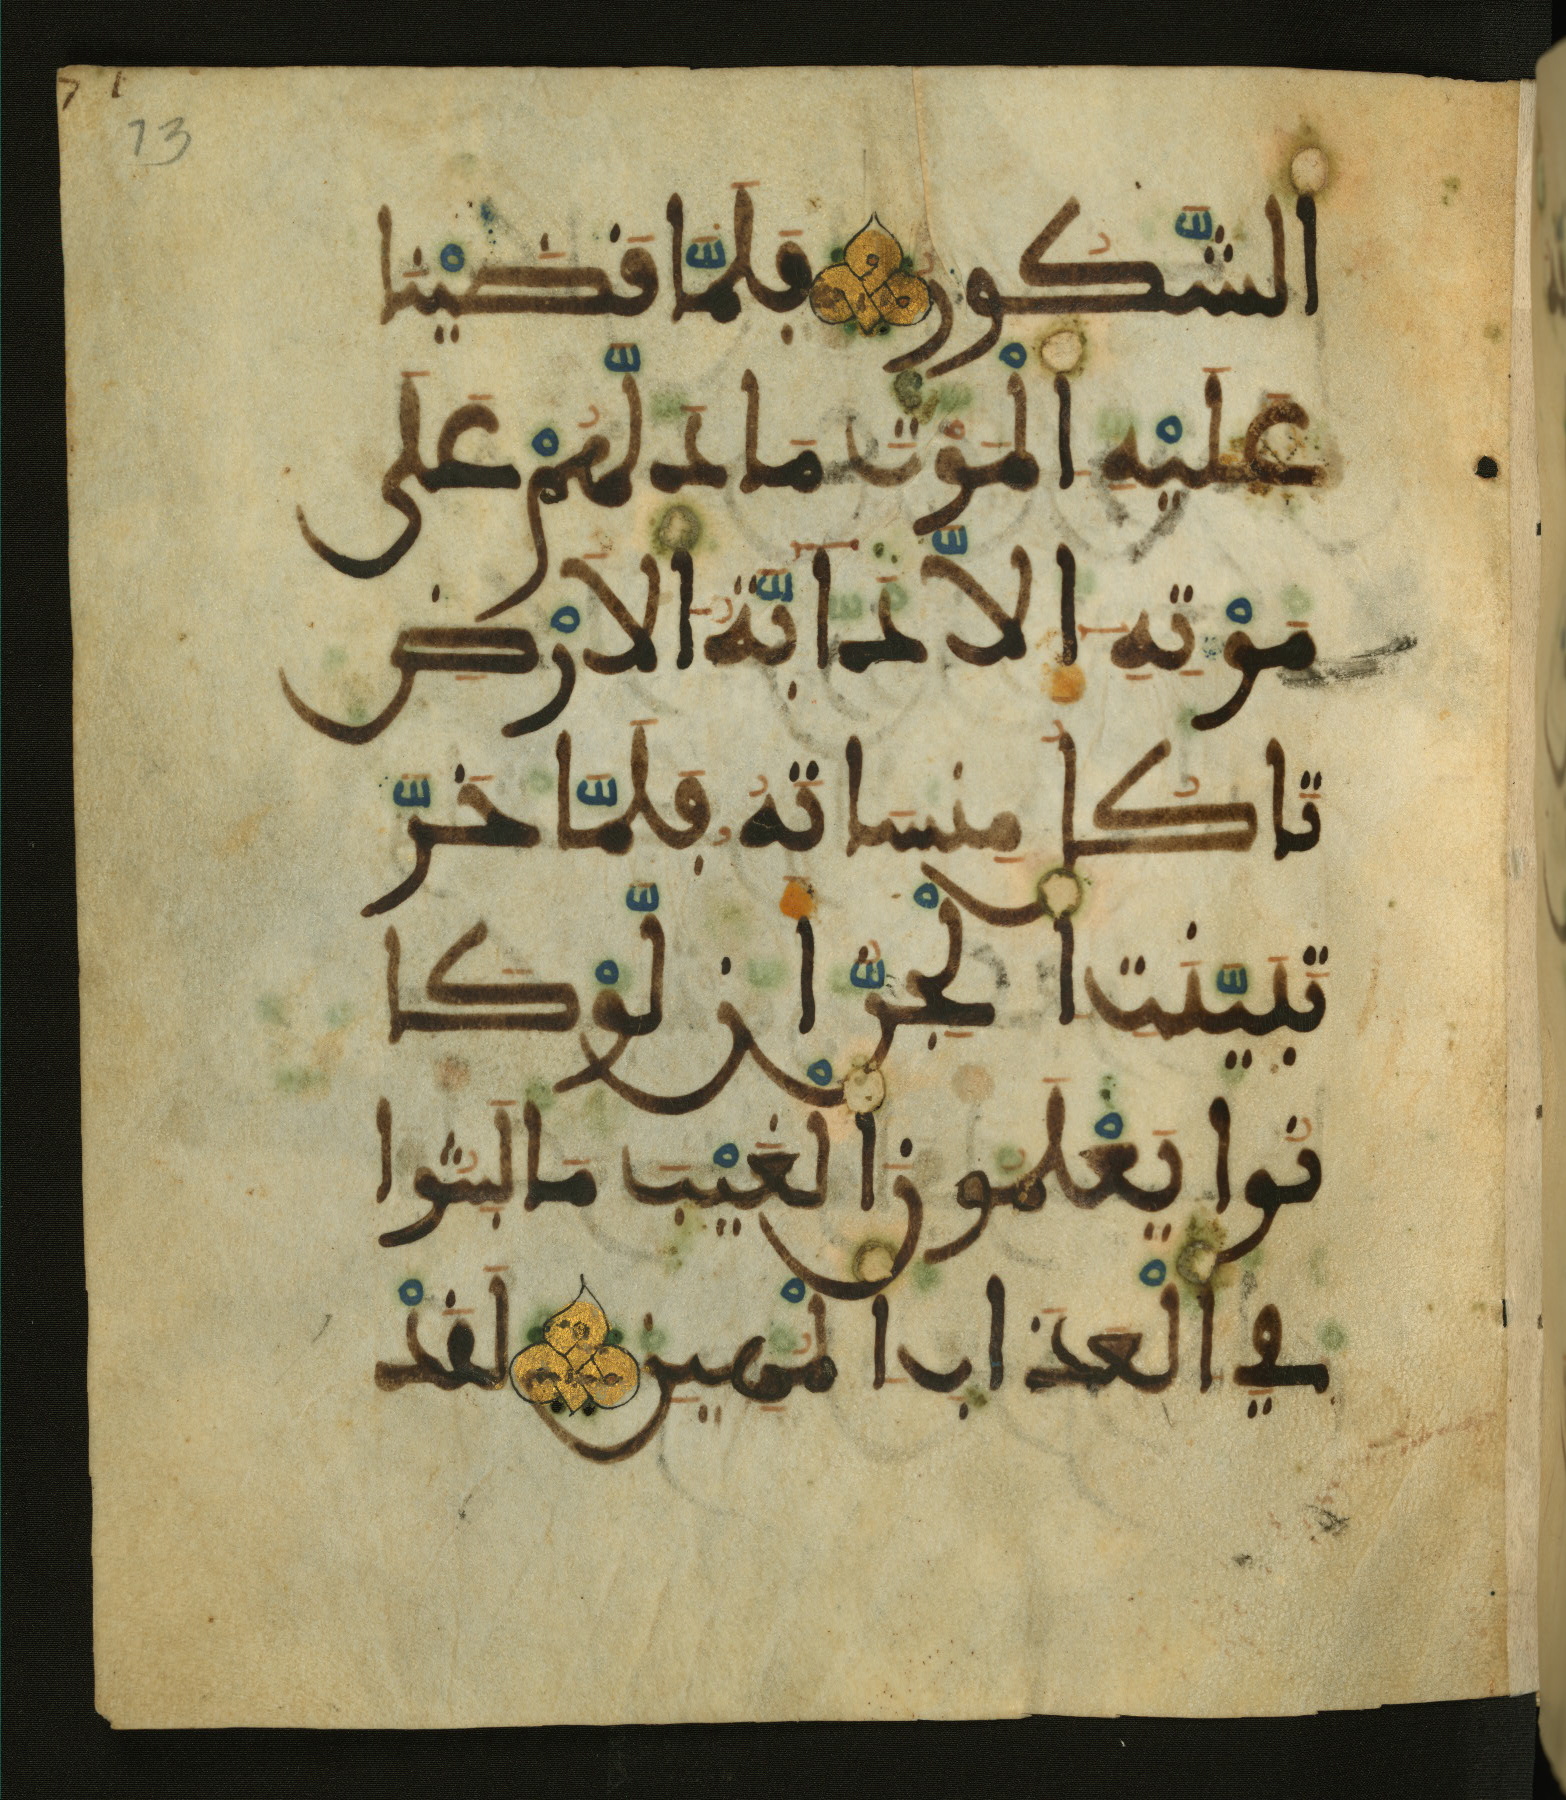 13
الشَّكُورُ فَلَمَّا قَضَيْنَا
عَلَيْهِ الْمَوْتَ مَا دَلَّهُمْ عَلَى
مَوْتِهِ إِلَّا دَابَّةُ الَارْضِ
تَاكُلُ مِنسَاتَهُ فَلَمَّا خَرَّ
تَبَيَّنَتِ الْجِنُّ أَن لَّوْ كَا
نُوا يَعْلَمُونَ الْغَيْبَ مَا لَبِثُوا
فِي الْعَذَابِ الْمُهِينِ لَقَدْ